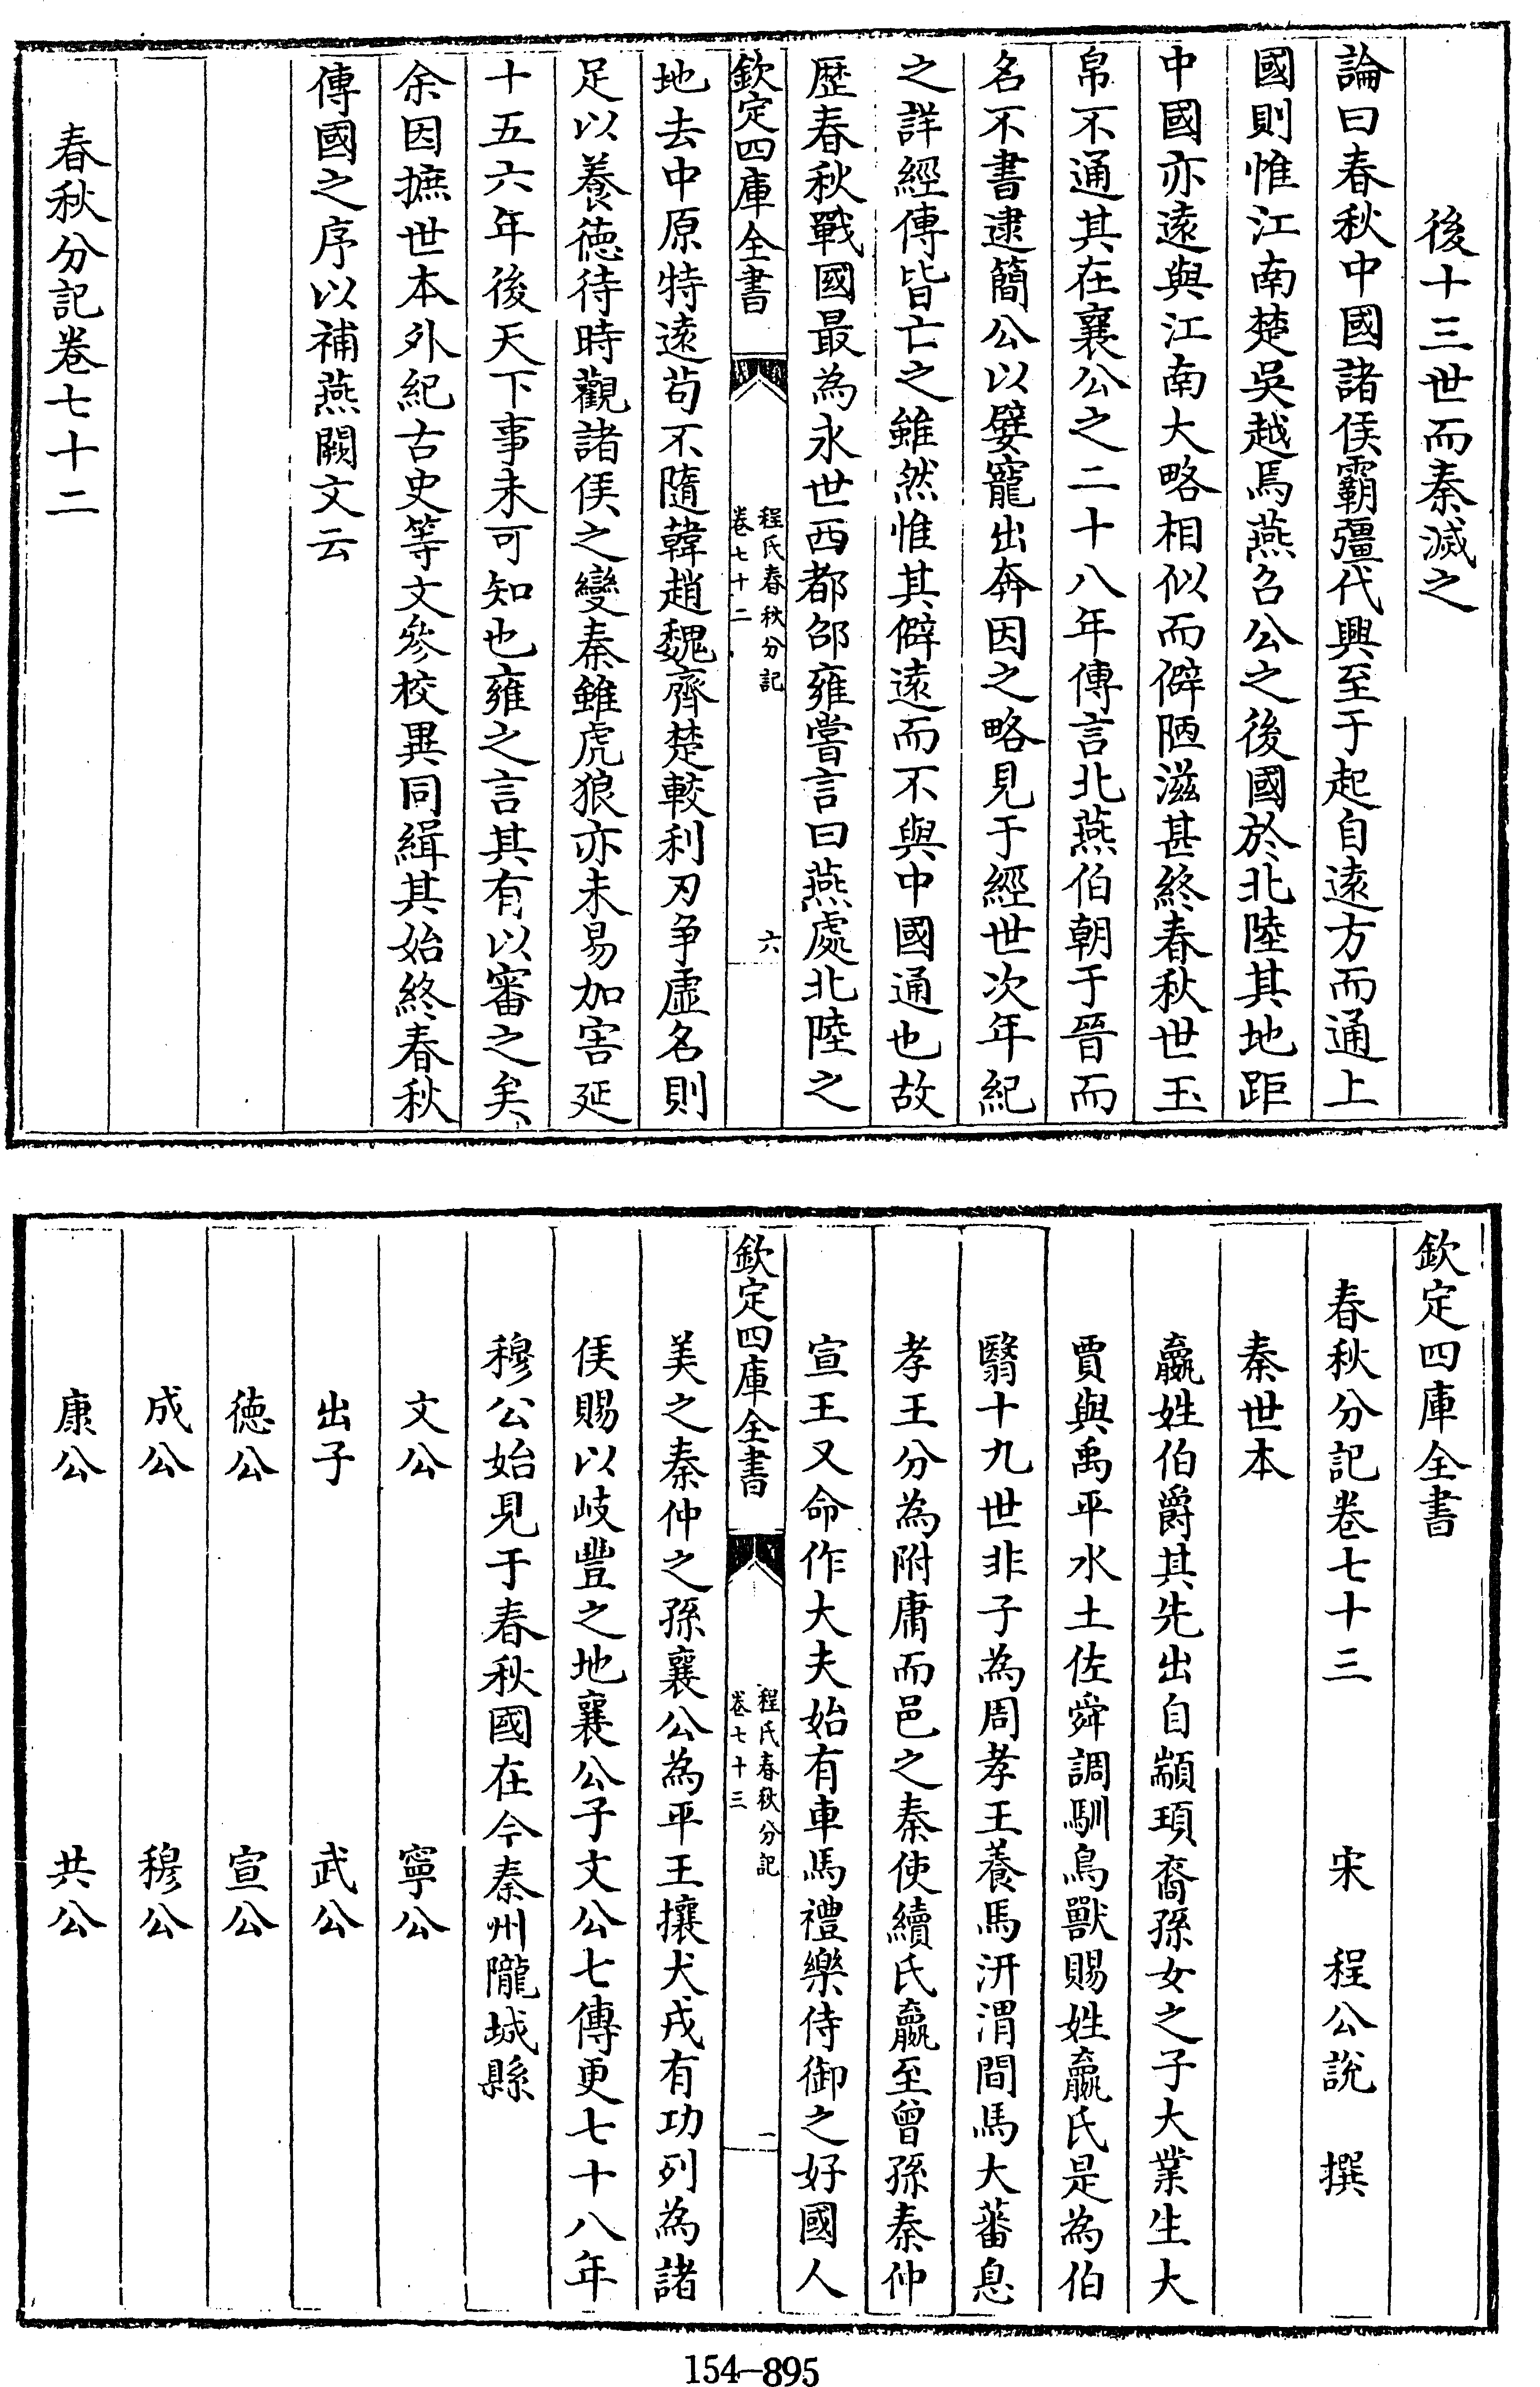 後十三世而秦滅之
論曰春秋中國諸侯霸彊代興至于起自遠方而通上
國則惟江南楚吳越焉燕召公之後國於北陸其地距
中國亦遠與江南大略相似而僻陋滋甚終春秋世玉
帛不通其在襄公之二十八年傳言北燕伯朝于晉而
名不書逮簡公以嬖寵出奔因之略見于經世次年紀
之詳經傳皆亡之雖然惟其僻遠而不與中國通也故
歴春秋戰國最為永世西都邵雍嘗言曰燕處北陸之
欽定四庫全書
程氏春秋分記
卷七十二
六
地去中原特遠苟不隨韓趙魏齊楚較利刃爭虛名則
足以養徳待時觀諸侯之變秦雖虎狼亦未易加害延
十五六年後天下事未可知也雍之言其有以審之矣
余因摭世本外紀古史等文參校異同緝其始終春秋
傳國之序以補燕闕文云
春秋分記卷七十二
欽定四庫全書
春秋分記卷七十三 宋 程公說 撰
秦世本
嬴姓伯爵其先出自顓頊裔孫女之子大業生大
賈與禹平水土佐舜調馴鳥獸賜姓嬴氏是為伯
翳十九世非子為周孝王養馬汧渭間馬大蕃息
孝王分為附庸而邑之秦使續氏嬴至曾孫秦仲
宣王又命作大夫始有車馬禮樂侍御之好國人
欽定四庫全書
程氏春秋分記
卷七十三
一
美之秦仲之孫襄公為平王攘犬戎有功列為諸
侯賜以岐豐之地襄公子文公七傳更七十八年
穆公始見于春秋國在今秦州隴城縣
文公 寧公
出子 武公
徳公 宣公
成公 穆公
康公 共公
154-895